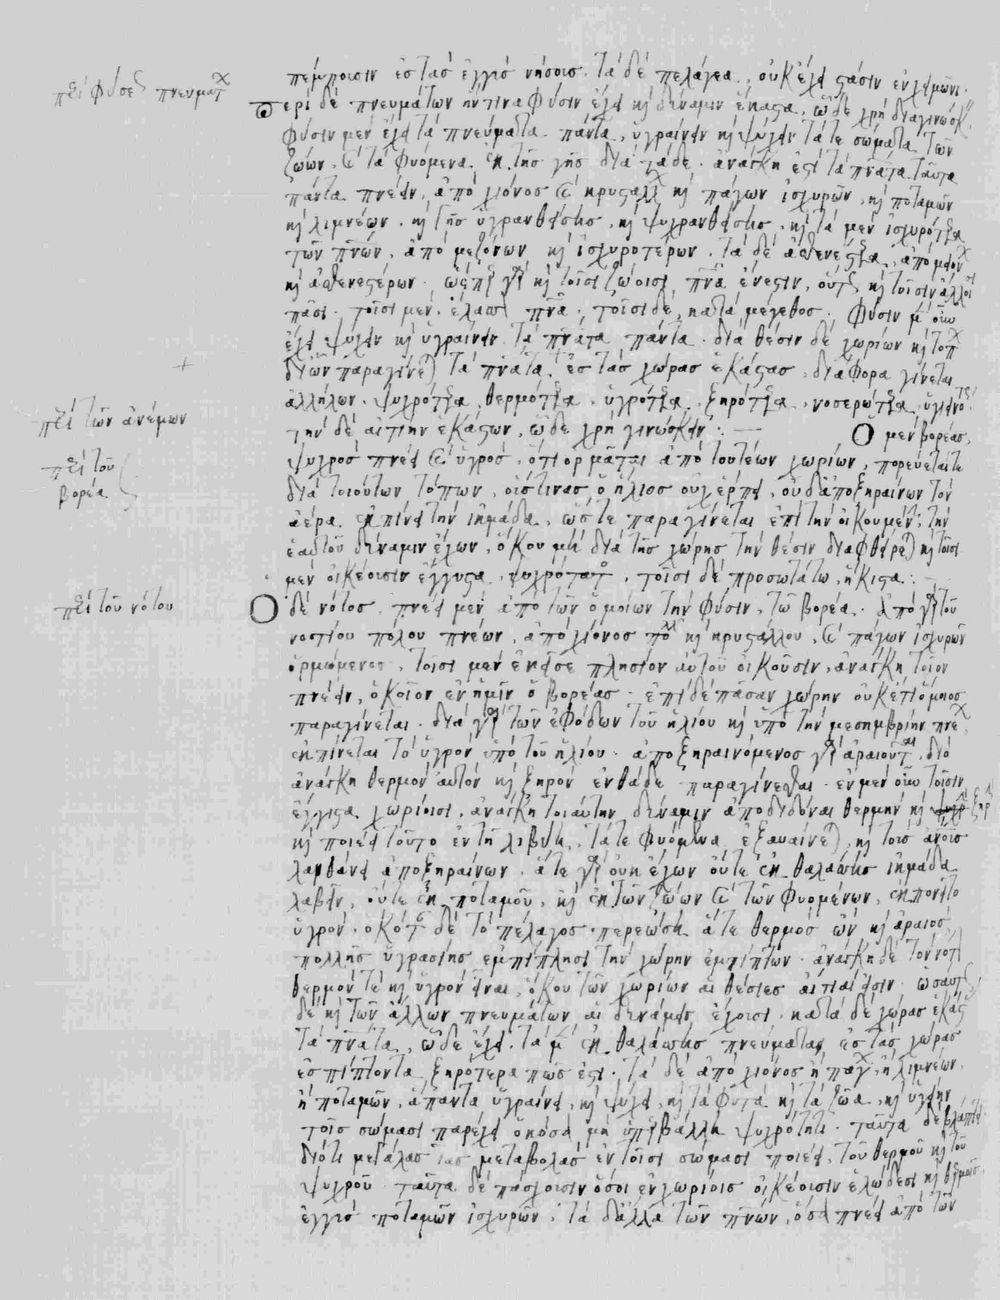 πέμπουσιν ἐς τὰς ἐγγὺς νήσους. τὰ δὲ πελάγεα, οὐκ ἔχει στάσιν ἐν χειμῶνι.
περὶ φύσεως πνευμάτων
Περὶ δὲ πνευμάτων ἥν τινα φύσιν ἔχει καὶ δύναμιν ἕκαστα, ὧδε χρὴ διαγινώσκειν.
φύσιν μὲν ἔχει τὰ πνεύματα πάντα, ὑγραίνειν καὶ ψύχειν τά τε σώματα τῶν
ζώων, καὶ τὰ φυόμενα ἐκ τῆς γῆς διὰ τάδε. ἀνάγκη ἐστὶ τὰ πν̅ατα ταῦτα
πάντα πνέειν, ἀπὸ χιόνος καὶ κρυστάλλου καὶ πάγων ἰσχυρῶν, καὶ ποταμῶν
καὶ λιμνέων, καὶ γῆς ὑγρανθείσης, καὶ ψυχρανθείσης, καὶ τὰ μὲν ἰσχυρότερα
τῶν πν̅ων, ἀπὸ μεζόνων καὶ ἰσχυροτέρων. τὰ δὲ ἀσθενέστερα, ἀπὸ μειόνων
καὶ ἀσθενεστέρων. ὥσπερ γὰρ καὶ τοῖσι ζώοισι πν̅α ἔνεστιν, οὕτω καὶ τοῖσιν ἄλλοισι
πᾶσι. τοῖσι μὲν, ἔλασσον πν̅α. τοῖσι δὲ, κατὰ μέγεθος. φύσιν μὲν οὖν
ἔχει ψύχειν καὶ ὑγραίνειν τὰ πν̅ατα πάντα. διὰ θέσιν δὲ χωρίων καὶ τόπων
δι' ὧν παραγίνεται τὰ πν̅ατα ἐς τὰς χώρας ἑκάστας, διάφορα γίνεται
ἀλλήλων. ψυχρότερα, θερμότερα, ὑγρότερα, ξηρότερα, νοσερώτερα, ὑγιεινότερα
περὶ τῶν ἀνέμων
τὴν δὲ αἰτίην ἑκάστων, ὧδε χρὴ γινώσκειν: — Ὁ μὲν βορέας,
περὶ τοῦ
βορέα
ψυχρὸς πνέει καὶ ὑγρὸς, ὅτι ὁρμᾶται ἀπὸ τουτέων χωρίων, πορεύεταί τε
διὰ τοιούτων τόπων, οὕστινας ὁ ἥλιος οὐχ ἕρπει, οὐδ' ἀποξηραίνων τὸν
ἀέρα ἐκπίνει τὴν ἰκμάδα, ὥστε παραγίνεται ἐπὶ τὴν οἰκουμένην, τὴν
ἑαυτοῦ δύναμιν ἔχων, ὅκου μὴ διὰ τῆς χώρης τὴν θέσιν διαφθάρεται καὶ τοῖσι
μὲν οἰκέουσιν ἔγγιστα, ψυχρότατος, τοῖσι δὲ προσωτάτω, ἥκιστα:
περὶ τοῦ νότου
Ὁ δὲ νότος, πνέει μὲν ἀπὸ τῶν ὁμοίων τὴν φύσιν, τῷ βορέα. ἀπὸ γὰρ τοῦ
νοτίου πόλου πνέων, ἀπὸ χιόνος πολλῆς καὶ κρυστάλλου, καὶ πάγων ἰσχυρῶν
ὁρμώμενος, τοῖσι μὲν ἐκεῖσε πλησίον αὐτοῦ οἰκοῦσιν, ἀνάγκη τοῖον
πνέειν, ὁκοῖον ἐν ἡμῖν ὁ βορέας. ἐπὶ δὲ πᾶσαν χώρην οὐκέτι ὅμοιος
παραγίνεται. διὰ γὰρ τῶν ἐφόδων τοῦ ἡλίου καὶ ὑπὸ τὴν μεσημβρίην πνέων,
ἐκπίνεται τὸ ὑγρὸν ὑπὸ τοῦ ἡλίου. ἀποξηραινόμενος γὰρ ἀραιοῦται, διὸ
ἀνάγκη θερμὸν αὐτὸν καὶ ξηρὸν ἐνθάδε παραγίνεσθαι. ἐν μὲν οὖν τοῖσιν
ἔγγιστα χωρίοισι, ἀνάγκη τοιαύτην δύναμιν ἀποδιδόναι θερμὴν καὶ ξηρὴν
καὶ ποιέει τοῦτο ἐν τῇ λιβύῃ, τά τε φυόμενα ἐξαυαίνεται, καὶ τοὺς ἀνο̅υς
λανθάνει ἀποξηραίνων. ἅτε γὰρ οὐκ ἔχων οὔτε ἐκ θαλάσσης ἰκμάδα
λαβεῖν, οὔτε ἐκ ποταμοῦ, καὶ ἐκ τῶν ζώων καὶ τῶν φυομένων, ἐκπονεῖ τὸ
ὑγρόν. ὁκόταν δὲ τὸ πέλαγος περεώσῃ ἅτε θερμὸς ὢν καὶ ἀραιὸς,
πολλῆς ὑγρασίης ἐμπίπλησι τὴν χώρην ἐμπίπτων. ἀνάγκη δὲ τὸν νότον
θερμόν τε καὶ ὑγρὸν εἶναι, ὅκου τῶν χωρίων αἱ θέσιες αἴτιαί εἰσιν. ὡσαύτως
δὲ καὶ τῶν ἄλλων πνευμάτων αἱ δυνάμεις ἔχουσι. κατὰ δὲ χώρας ἑκάστας
τὰ πν̅ατα, ὧδε ἔχει. τὰ μὲν ἐκ θαλάσσης πνεύματα, ἐς τὰς χώρας
ἐσπίπτοντα ξηρότερά πώς ἐστι. τὰ δὲ ἀπὸ χιόνος ἢ πάγων, ἢ λιμνέων,
ἢ ποταμῶν, ἅπαντα ὑγραίνει, καὶ ψύχει, καὶ τὰ φυτὰ καὶ τὰ ζῶα, καὶ ὑγείην
τοῖς σώμασι παρέχει ὁκόσα μὴ ὑπερβάλλῃ ψυχρότητι. ταῦτα δὲ βλάπτει
διότι μεγάλας τὰς μεταβολὰς ἐν τοῖσι σώμασι ποιέει, τοῦ θερμοῦ καὶ τοῦ
ψυχροῦ. ταῦτα δὲ πάσχουσιν ὅσοι ἐν χωρίοις οἰκέουσιν ἑλώδεσι καὶ θερμοῖς
ἐγγὺς ποταμῶν ἰσχυρῶν, τὰ δ' ἄλλα τῶν πν̅ων, ὅσα πνέει ἀπὸ τῶν